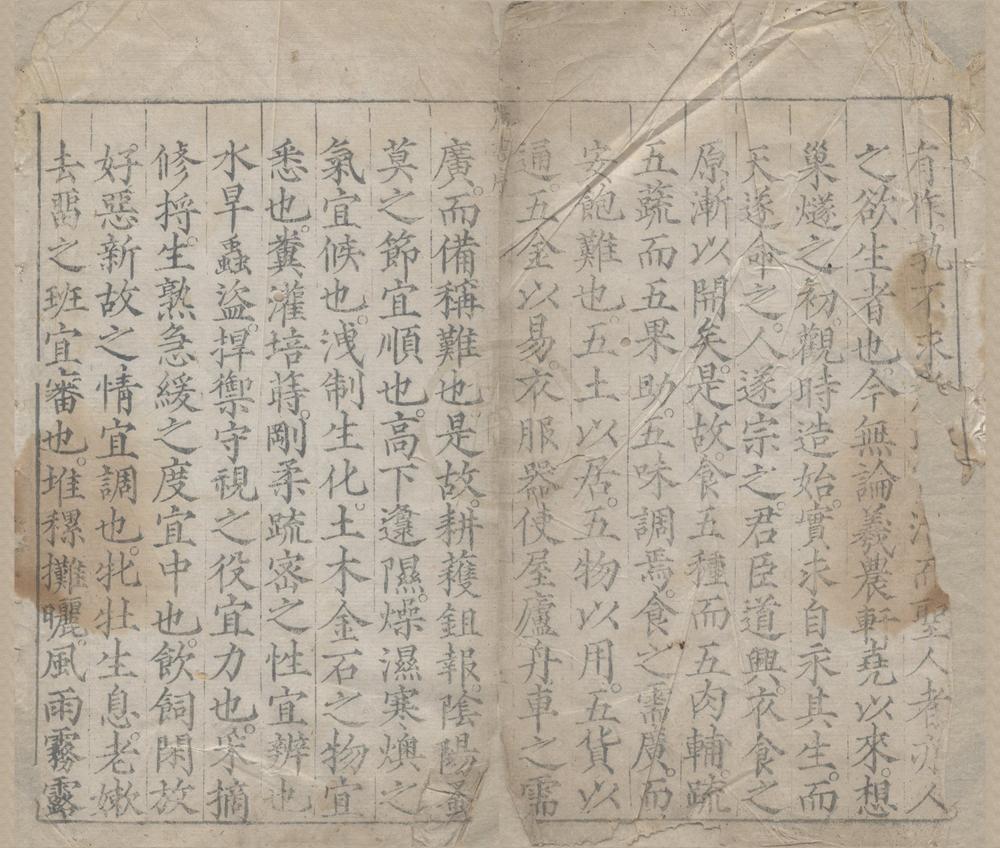 有作孰不求聖人者亦人
之欲生者也今無論羲農軒堯以來想
巢燧之初觀時造始實未自求其生而
天遂命之人遂宗之君臣道興衣食之
原漸以開矣是故食五種而五肉輔疏
五蔬而五果助五味調焉食之需廣而
安飽難也五土以居五物以用五貨以
通五金以易衣服器使屋廬舟車之需
廣而備稱難也是故耕穫鉏報陰陽蚤
莫之節宜順也高下邍隰燥濕寒燠之
氣宜候也洩制生化土木金石之物宜
悉也糞灌培蒔剛柔疏密之性宜辨也
水旱蟲盜捍禦守視之役宜力也采摘
修捋生熟急緩之度宜中也飲飼閑放
好惡新故之情宜調也牝牡生息老嫩
去畱之班宜審也堆穋攤曬風雨霧露